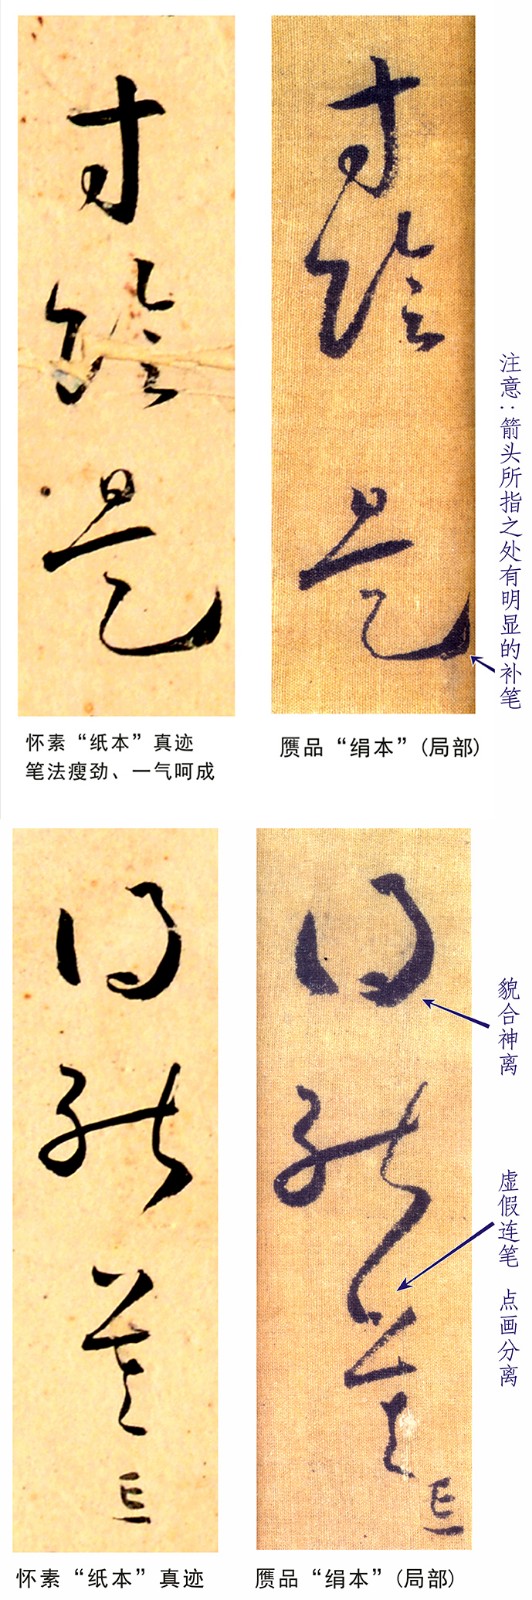 寸陰是
寸陰是
注意：箭头所指之处有明显的补笔
怀素“纸本”真迹
笔法瘦劲、一气呵成
赝品“绢本”(局部)
得能莫
得能莫
貌合神离
虚假连笔 点画分离
怀素“纸本”真迹
赝品“绢本”(局部)